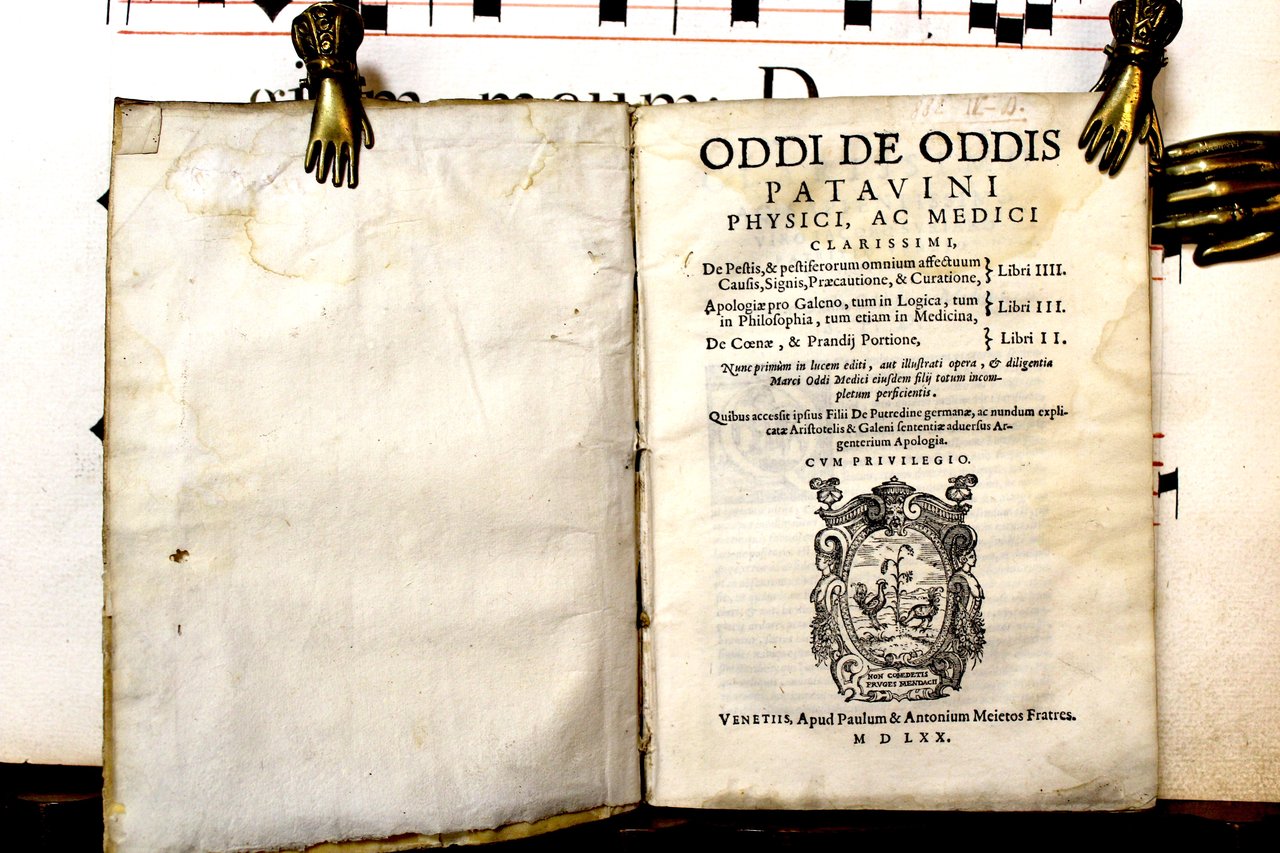 meum: D
ODDI DE ODDIS
PATAVINI
PHYSICI, AC MEDICI
CLARISSIMI,
De Peſtis, & peſtiferorum omnium affectuum
Cauſis, Signis, Præcautione, & Curatione, } Libri IIII.
Apologiæ pro Galeno, tum in Logica, tum
in Philoſophia, tum etiam in Medicina, } Libri III.
De Cœnæ, & Prandij Portione, } Libri II.
Nunc primùm in lucem editi, aut illuſtrati opera, & diligentia
Marci Oddi Medici eiuſdem filij totum incom-
pletum perficientis.
Quibus acceſsit ipſius Filii De Putredine germanæ, ac nundum expli-
catæ Ariſtotelis & Galeni ſententiæ aduerſus Ar-
genterium Apologia.
CVM PRIVILEGIO.
NON COMEDETIS
FRVGES MENDACII
VENETIIS, Apud Paulum & Antonium Meietos Fratres.
M D LXX.